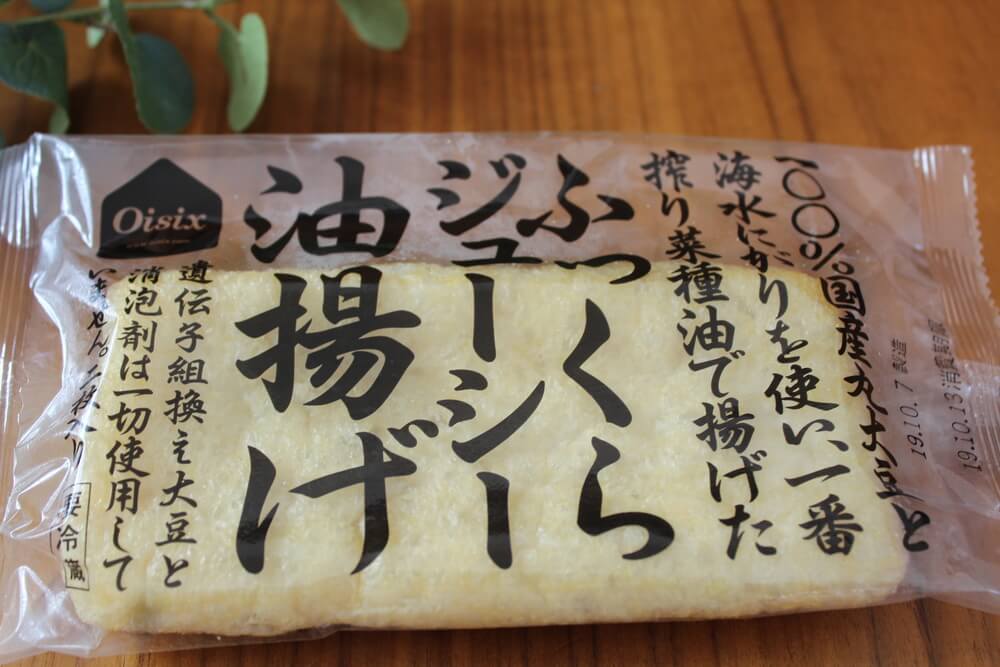 一〇〇%国産丸大豆と
海水にがりを使い、一番
搾り菜種油で揚げた
ふっくら
ジューシー
油揚げ
Oisix
遺伝子組換え大豆と
消泡剤は一切使用して
いません。二枚入り
要冷蔵
19.10.7 製造
19.10.13 消費期限